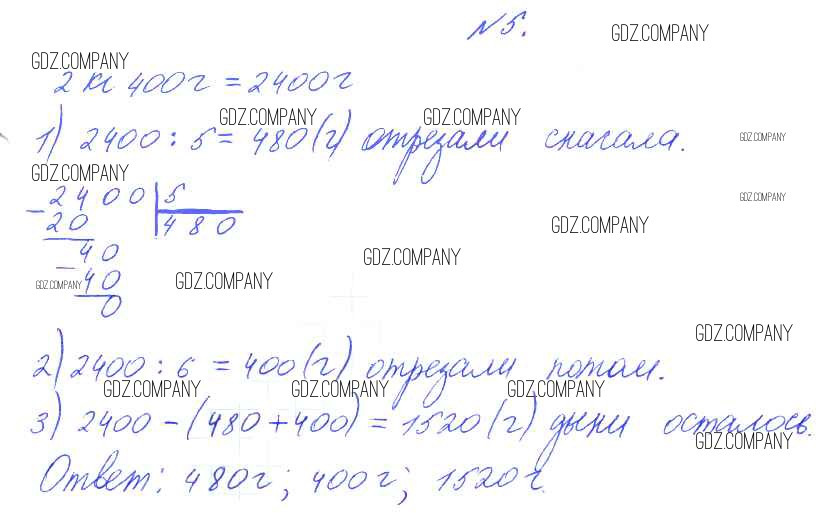 № 5.
GDZ.COMPANY
GDZ.COMPANY
2 кг 400 г = 2400 г
GDZ.COMPANY GDZ.COMPANY
1) 2400 : 5 = 480 (г) отрезали сначала.
GDZ.COMPANY
GDZ.COMPANY
2400 | 5
GDZ.COMPANY
– 20 | 480
GDZ.COMPANY
40
GDZ.COMPANY
– 40
GDZ.COMPANY GDZ.COMPANY
0
GDZ.COMPANY
2) 2400 : 6 = 400 (г) отрезали потом.
GDZ.COMPANY GDZ.COMPANY GDZ.COMPANY
3) 2400 – (480 + 400) = 1520 (г) дыни осталось.
GDZ.COMPANY
Ответ: 480 г; 400 г; 1520 г.